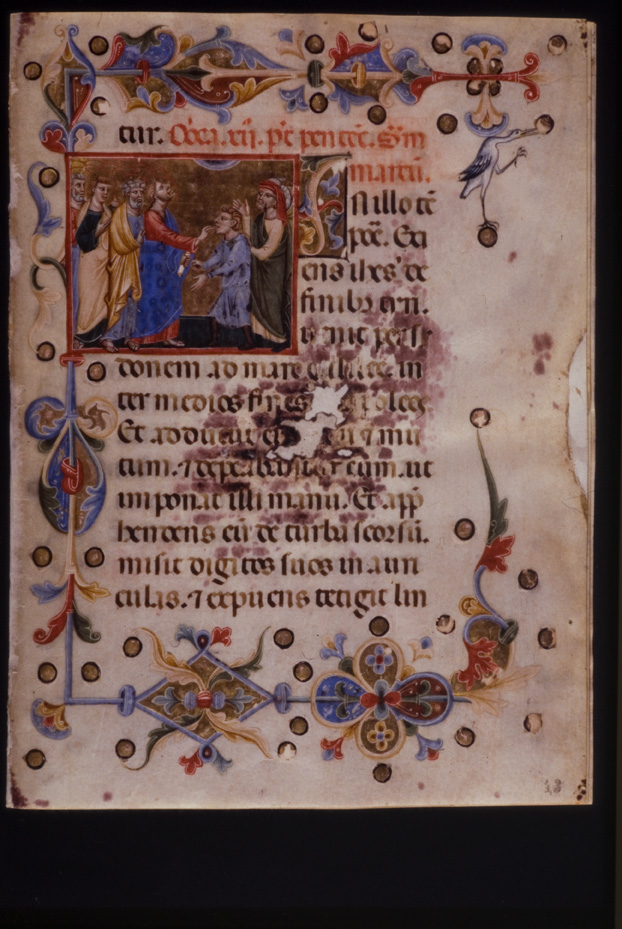 tur. Dñica. xii. p̃t pentec̃. S̃m
marcũ.
In illo tẽ
pore. Exi
ens ih̃s de
finib; tiri.
uenit per si
donem ad mare galilee. in
ter medios fines
Et adducunt ei et mu
tum. ⁊ deprecabantur eum. ut
imponat illi manũ. Et app̃
hendens eũ de turba seorsũ.
misit digitos suos in auri
culas. ⁊ expuens tetigit lin
13